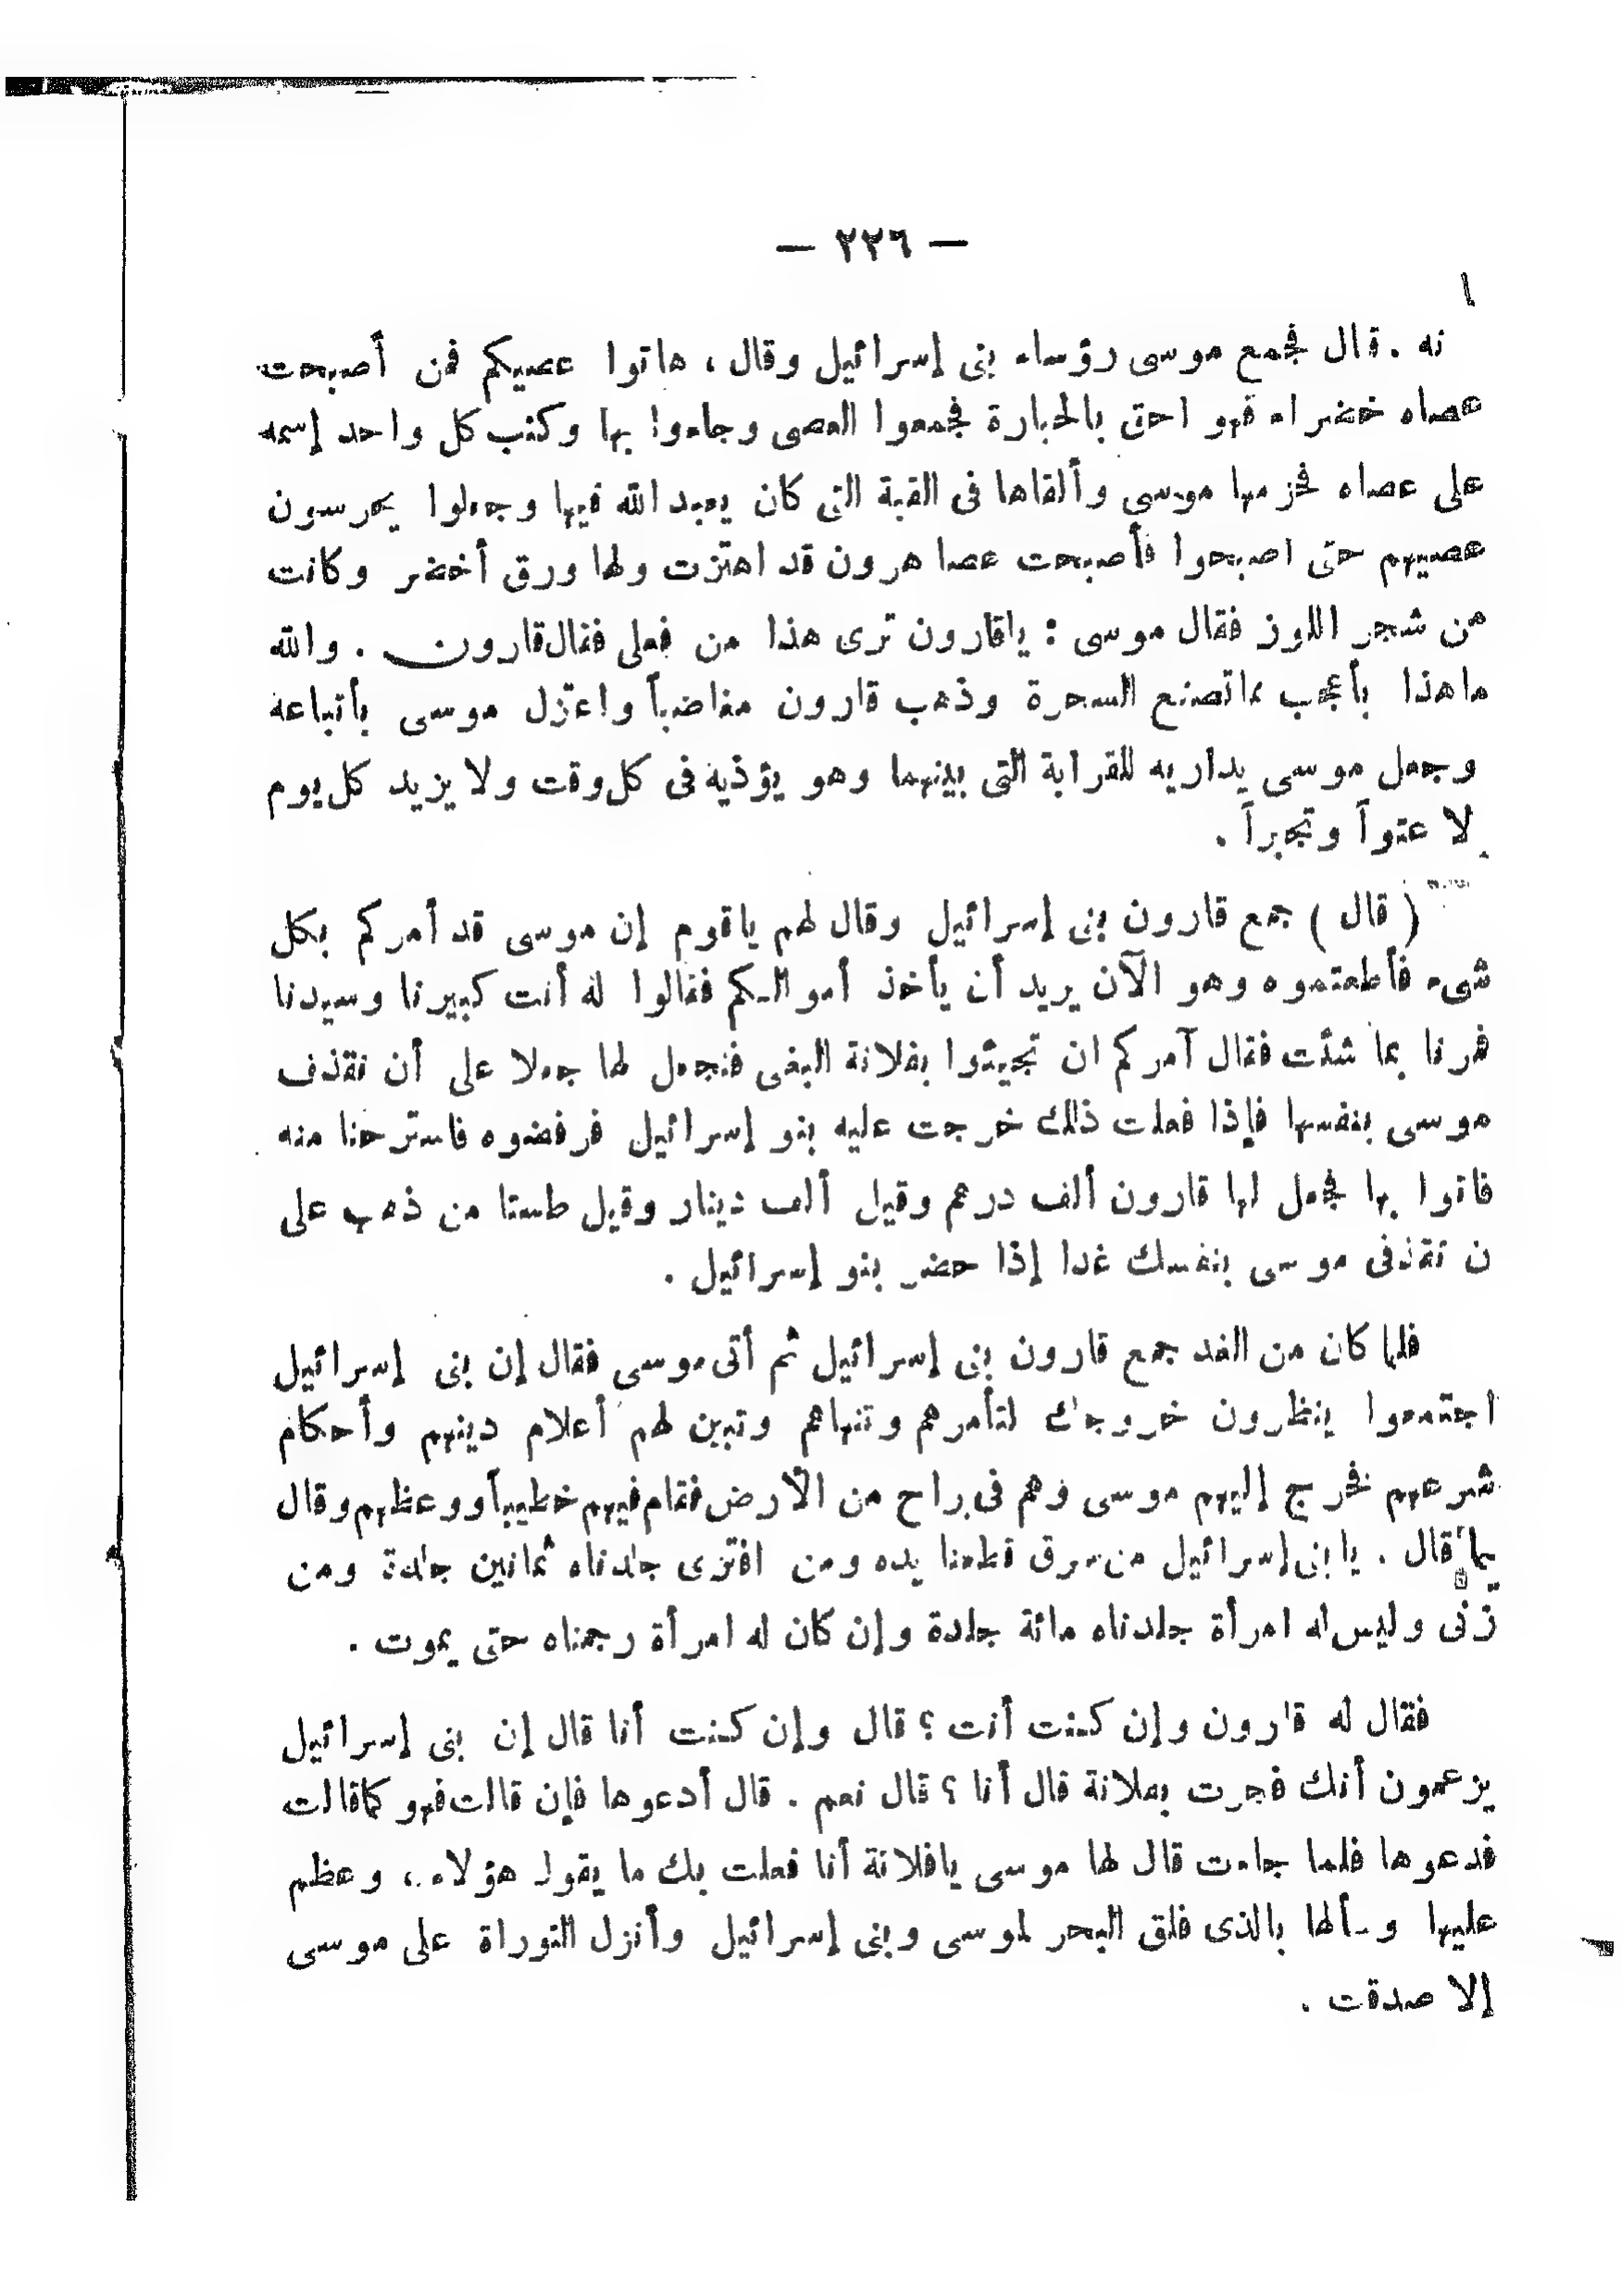 — ٢٢٦ —
نه . قال فجمع موسى رؤساء بنى إسرائيل وقال ، هاتوا عصيكم فمن أصبحت
عصاه خضراء فهو احق بالحبارة فجمعوا العصى وجاءوا بها وكتب كل واحد إسمه
على عصاه فحزمها موسى وألقاها فى القبة التى كان يعبد الله فيها وجعلوا يحرسون
عصيهم حتى اصبحوا فأصبحت عصا هرون قد اهتزت ولها ورق أخضر وكانت
من شجر اللوز فقال موسى : ياقارون ترى هذا من فعلى فقال قارون . والله
ماهذا بأعجب مما تصنع السحرة وذهب قارون مغاضباً واعتزل موسى بأتباعه
وجعل موسى يداريه للقرابة التى بينهما وهو يؤذيه فى كل وقت ولا يزيد كل يوم
لا عتواً وتجبراً .
( قال ) جمع قارون بنى إسرائيل وقال لهم ياقوم إن موسى قد أمركم بكل
شىء فأطعتموه وهو الآن يريد أن يأخذ أموالكم فقالوا له أنت كبيرنا وسيدنا
فمرنا بما شئت فقال آمركم ان تجيئوا بفلانة البغى فنجعل لها جعلا على أن تقذف
موسى بنفسها فإذا فعلت ذلك خرجت عليه بنو إسرائيل فرفضوه فاسترحنا منه
فاتوا بها فجعل لها قارون ألف درهم وقيل ألف دينار وقيل طستا من ذهب على
ن تقذفى موسى بنفسك غدا إذا حضر بنو إسرائيل .
فلما كان من الغد جمع قارون بنى إسرائيل ثم أتى موسى فقال إن بنى إسرائيل
اجتمعوا ينظرون خروجك لتأمرهم وتنهاهم وتبين لهم أعلام دينهم وأحكام
شرعهم فخرج إليهم موسى وهم فى براح من الأرض فقام فيهم خطيباً ووعظهم وقال
فيما قال . يا بنى إسرائيل من سرق قطعنا يده ومن افترى جلدناه ثمانين جلدة ومن
زنى وليس له امرأة جلدناه مائة جلدة وإن كان له امرأة رجمناه حتى يموت .
فقال له قارون وإن كنت أنت ؟ قال وإن كنت أنا قال إن بنى إسرائيل
يزعمون أنك فجرت بفلانة قال أنا ؟ قال نعم . قال أدعوها فإن قالت فهو كما قالت
فدعوها فلما جاءت قال لها موسى يافلانة أنا فعلت بك ما يقول هؤلاء ، وعظم
عليها وسألها بالذى فلق البحر لموسى وبنى إسرائيل وأنزل التوراة على موسى
إلا صدقت .